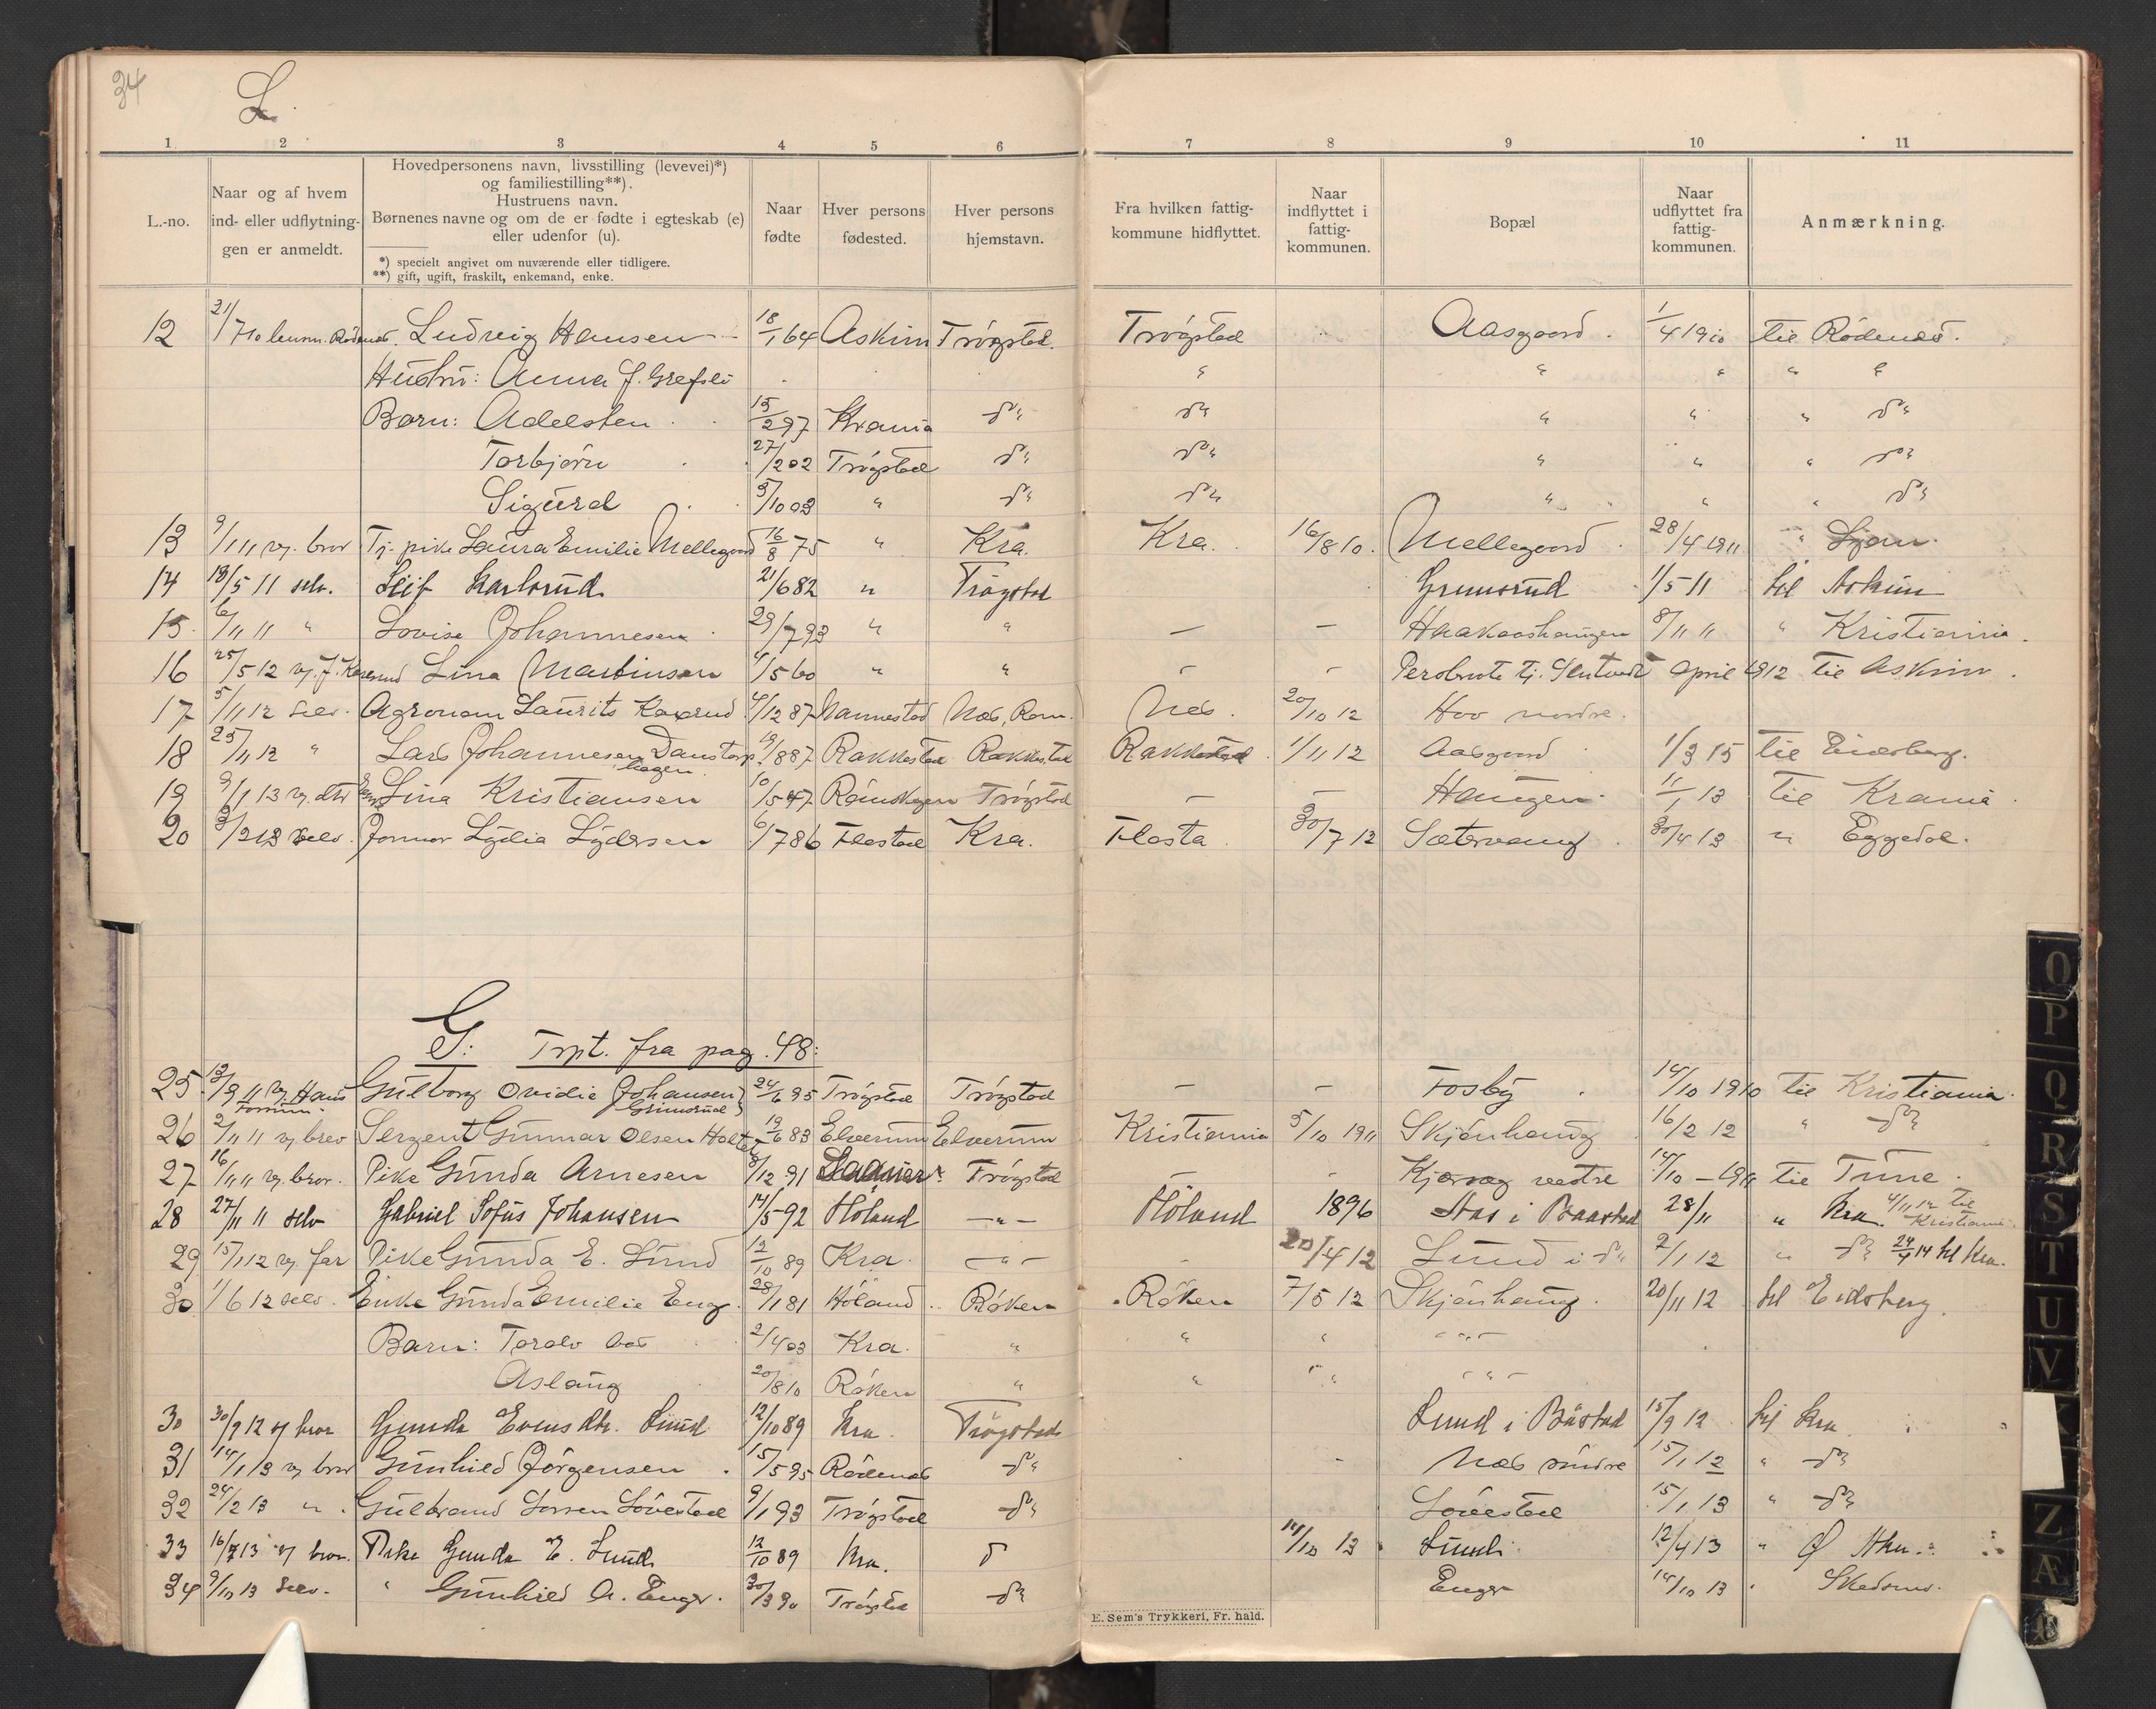 34
L.
1 2 3 4 5 6 7 8 9 10 11
L.-no.
Naar og af hvem
ind- eller udflytnin-
gen er anmeldt.
Hovedpersonens navn, livsstilling (levevei)*)
og familiestilling**).
Hustruens navn.
Børnenes navne og om de er fødte i egteskab (e)
eller udenfor (u).
*) specielt angivet om nuværende eller tidligere.
**) gift, ugift, fraskilt, enkemand, enke.
Naar
fødte
Hver persons
fødested.
Hver persons
hjemstavn.
Fra hvilken fattig-
kommune hidflyttet.
Naar
indflyttet i
fattig-
kommunen.
Bopæl
Naar
udflyttet fra
fattig-
kommunen.
Anmærkning.
12 21/7 10 lensm. Rødenes. Ludvig Hansen 18/1 64 Askim Trøgstad. Trøgstad Aasgaard. 1/4 1910 til Rødenes.
Hustru: Anna J. Grefsli " " " " "
Børn: Adelsten 15/2 97 Krania do do " " " do
Torbjørn 27/2 02 Trøgstad do do " " " do
Sigurd 5/10 03 " do do " " " do
13 9/1 11 vg. brev Tj. pike Laura Emilie Mellegaard 16/8 75 " Kra. Kra. 16/8 10. Mellegaard 28/4 1911 " Ljan.
14 18/5 11 selv. Leif Karlsrud 21/6 82 " Trøgstad Grimsrud 1/5 11 til Askim
15. 6/11 11 " Lovise Johannesen 29/7 93 " " — — Haakaashaugen 8/11 11 " Kristiania.
16 25/5 12 vg. J. Lina Martinsen 4/5 60 " " - - tj. april 1912 til Askim.
17 5/11 12 selv. Agronom Laurits Kaxrud 4/12 87 Nannestad Nes, Rom. Nes. 20/10 12 Hov nordre.
18 25/11 12 " Lars Johannesen Damstorp hagen. 19/8 87 Rakkestad Rakkestad Rakkestad 1/11 12 Aasgaard 1/3 15 til Eidsberg.
19 9/1 13 vg. dtr Enke Lina Kristiansen 10/5 47 Rømskogen Trøgstad — — Haugen 11/1 13 til Krania.
20 3/2 13 selv. Jormor Lydia Lydersen 6/7 86 Flostad Kra. Flosta. 30/7 12 Sætervang 30/4 13 " Eggedal.
G: Trpt. fra pag. 48:
25. 13/9 11 vg. Hans Gulborg Ovidie Johansen Grimsrud 24/6 95 Trøgstad Trøgstad — — Fosby 14/10 1910 til Kristiania.
26 2/11 11 vg. brev Sergent Gunnar Olsen Holte 19/6 83 Elverum Elverum Kristiania 5/10 1911 Skjønhaug 16/2 12 " do
27 16/11 11 vg. brev. Pike Gunda Arnesen 8/12 91 Trøgstad - Kjærsag vestre 14/10 - 1911 til Tune.
28 27/11 11 selv Gabriel Sofus Johansen 14/5 92 Høland —"— Høland 1896 Aas i Baastad 28/11 " Kra. 4/11 12 til Kristiania.
29 15/1 12 vg. far Pike Gunda E. Lund 12/10 89 Kra. —"— - 20/4 12 Lund i do 2/1 12 " do 24/4 14 til Kra.
30 1/6 12 selv. Enke Gunda Emilie Enge. 28/1 81 Høland. Røken Røken 7/5 12 Skjønhaug. 20/11 12 til Eidsberg.
Barn: Toralv 2/4 03 Kra. " " " —"—
Aslaug 20/8 10 Røken " " " —"—
30 30/9 12 vg brev Gunda Evensdtr. Lund 12/10 89 Kra. Trøgstad Lund i Båstad 15/9 12 til Kra.
31 14/1 13 vg brev Gunhild Jørgensen. 15/5 95 Rødenes do Næs søndre 15/1 12 " do
32 24/2 13 " Gulbrand Larsen Løvestad 9/1 93 Trøgstad do Løvestad 15/1 13 " do
33 16/7 13 vg brev. Pike Gunda E. Lund 12/10 89 Kra. do 14/10 13 Lund 12/4 13 " Ø
34 9/10 13 selv. " Gunhild A. Enger. 30/3 90 Trøgstad do Enger 14/10 13 " Skedsmo.
E. Sem's Trykkeri, Fr. hald.
O
P
Q
R
S
T
U
V
Z
Æ
Ø